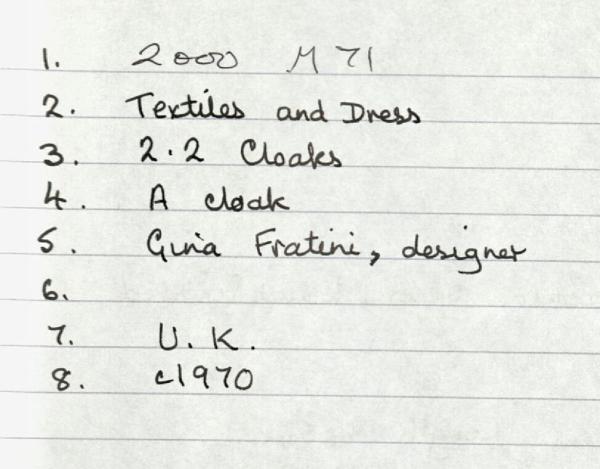 1. 2000 M 71
2. Textiles and Dress
3. 2.2 Cloaks
4. A cloak
5. Gina Fratini, designer
6.
7. U.K.
8. c1970